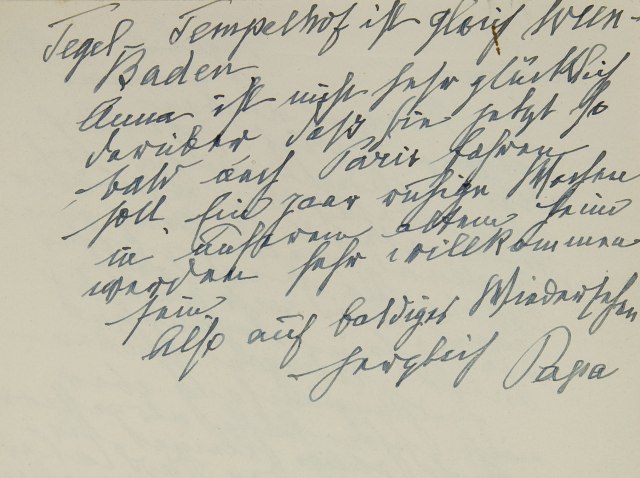 Tegel Tempelhof ist gleich Wien-
Baden
Anna ist nicht sehr glücklich
darüber daß sie jetzt so
bald nach Paris fahren
soll. Ein paar ruhige Wochen
in unserem alten Heim
werden sehr willkommen
sein.
Also auf baldiges Wiedersehen
herzlich Papa